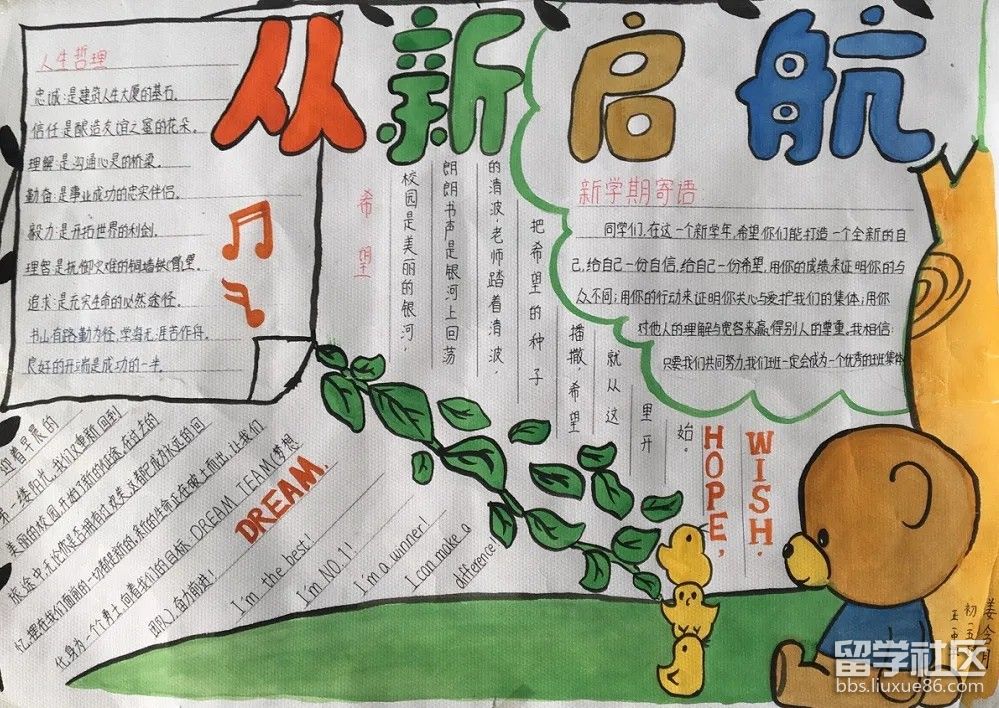 从新启航
人生哲理
忠诚:是建筑人生大厦的基石.
信任:是酿造友谊之蜜的花朵.
理解:是沟通心灵的桥梁.
勤奋:是事业成功的忠实伴侣.
毅力:是开拓世界的利剑.
理智:是抚御灾难的铜墙铁壁.
追求:是充实生命的必然途径.
书山有路勤为径,学海无涯苦作舟.
良好的开端是成功的一半.
希望
校园是美丽的银河,
朗朗书声是银河上回荡
的清波,老师踏着清波,
把希望的种子
播撒,希望
就从这
里开
始.
新学期寄语
同学们,在这一个新学年,希望你们能打造一个全新的自
己,给自己一份自信,给自己一份希望,用你的成绩来证明你的与
众不同;用你的行动来证明你关心与爱护我们的集体;用你
对他人的理解与宽容来赢得别人的尊重.我相信:
只要我们共同努力,我们班一定会成为一个优秀的班集体
迎着早晨的
第一缕阳光,我们又重新回到
美丽的校园,开始了新的征途.在过去的
旅途中,无论你是否拥有过欢笑,这都已成为永远的回
忆.摆在我们面前的一切都是新的,新的生命正在破土而出,让我们
化身为一个个勇士,向着我们的目标:DREAM TEAM(梦想
团队),奋力前进!
DREAM.
I'm the best!
I'm NO.1!
I'm a winner!
I can make a
difference!
HOPE,
WISH.
姜含月
初一五
留学社区
bbs.liuxue86.com